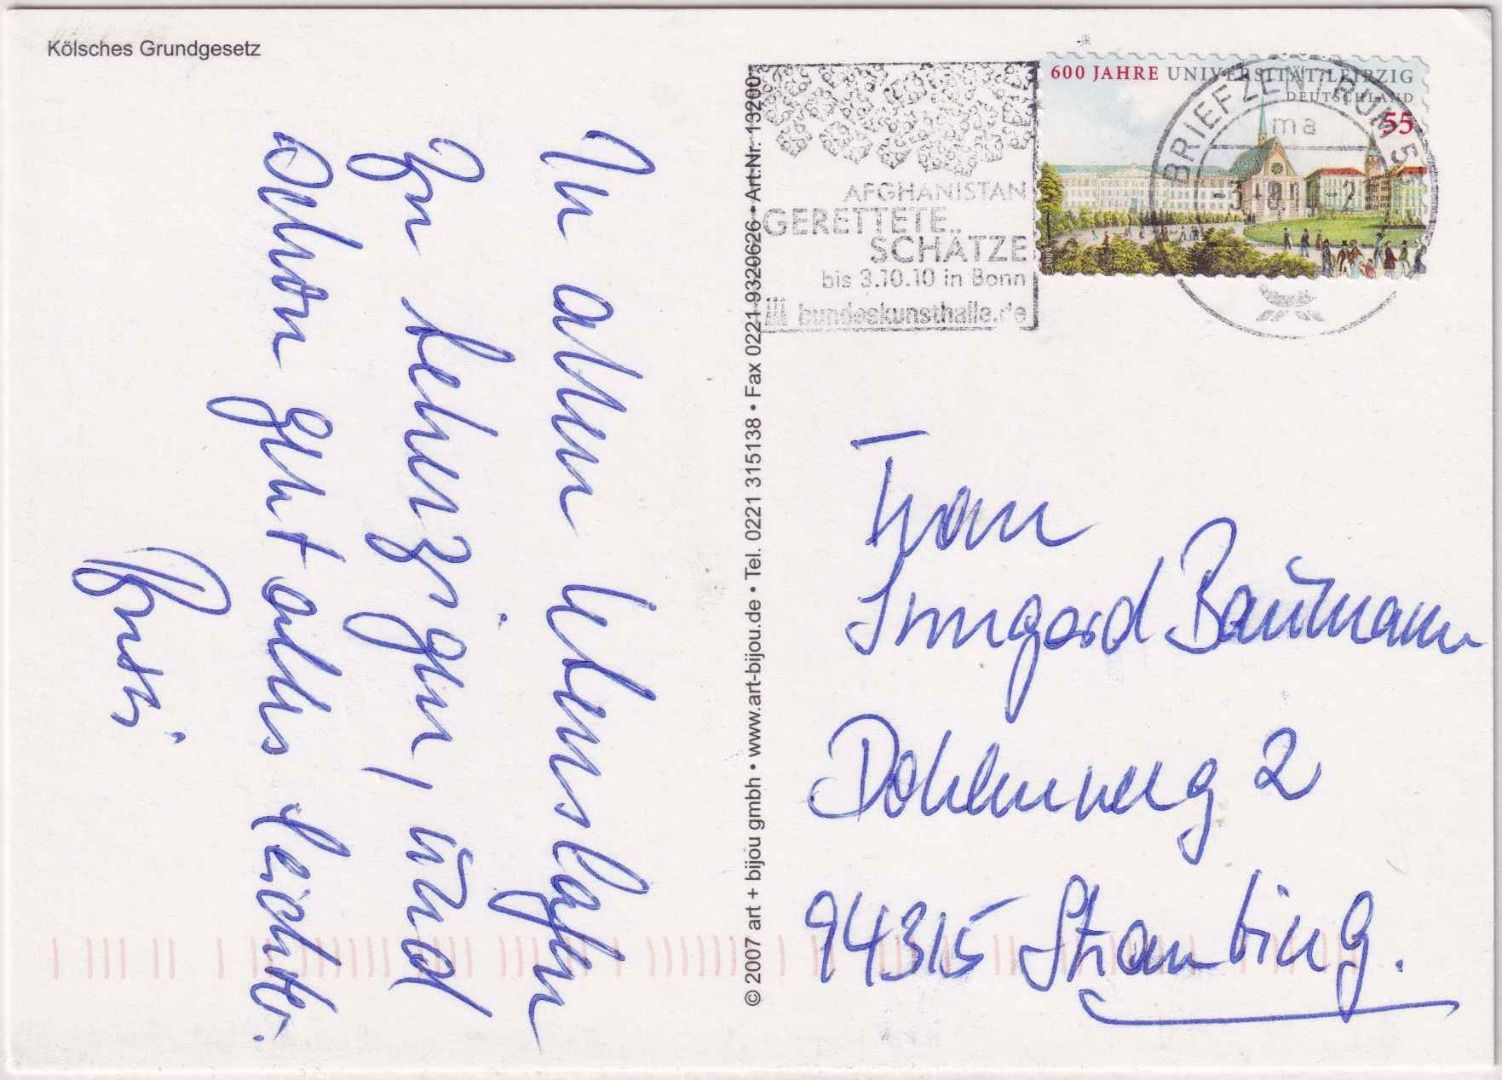 Kölsches Grundgesetz
In allen Lebenslagen
zu beherzigen, und
schon geht alles leichter.
© 2007 art + bijou gmbh • www.art-bijou.de • Tel. 0221 315138 • Fax 0221-9320626 • Art.Nr. 13200
AFGHANISTAN
GERETTETE
SCHÄTZE
bis 3.10.10 in Bonn
bundeskunsthalle.de
600 JAHRE UNIVERSITÄT LEIPZIG
DEUTSCHLAND
55
BRIEFZENTRUM 53
ma
Frau
Irmgard Baumann
Dohlenweg 2
94315 Straubing.